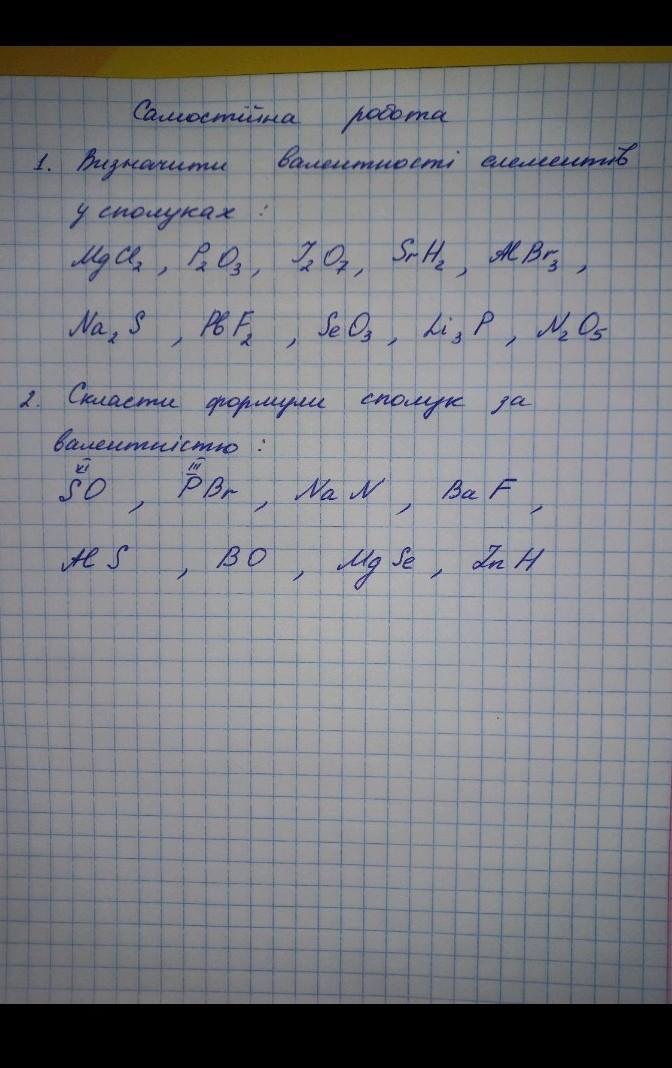 Самостійна робота
1. Визначити валентності елементів
у сполуках :
MgCl₂ , P₂O₃ , I₂O₇ , SrH₂ , AlBr₃ ,
Na₂S , PbF₂ , SeO₃ , Li₃P , N₂O₅
2. Скласти формули сполук за
валентністю :
VI III
SO , PBr , NaN , BaF ,
AlS , BO , MgSe , ZnH